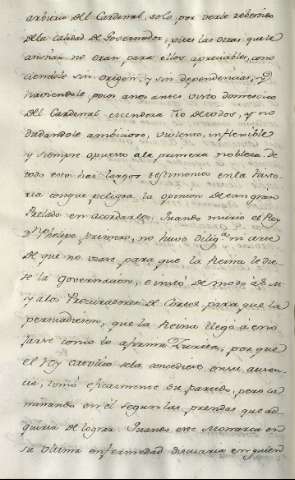 arbitrio del Cardenal, solo por verle rebestido
de la calidad de Governador, pues las otras que le
asistian no eran para ellos apreciables, cono
ciendole sin origen, y sin dependencias, y
haviendole pocos años antes visto domestico
del Cardenal Mendoza tio de todos, y no
dudandole ambicioso, violento, inflexible
y siempre opuesto a la primera nobleza, de
todo esto dio largos testimonios en la histo
ria aunque peligra la opinion de tan gran
Prelado en acordarlo. Quando murio el Rey
Dn Phelipe primero, no huvo diligª
de que no usase para que la Reina le die
se la Governacion, e instó de modo a S. M.
y a los Procuradores de Cortes para que la
persuadiesen, que la Reina llegó a eno
jarse como lo afirma Zurita, porque
el Rey Catolico sela concediere en su ausen
cia, tomó eficazmente su partido, pero ca
minando en él segun las prendas que ad
quiria de lograr. Quando este Monarca en
su ultima enfermedad discurria en quien